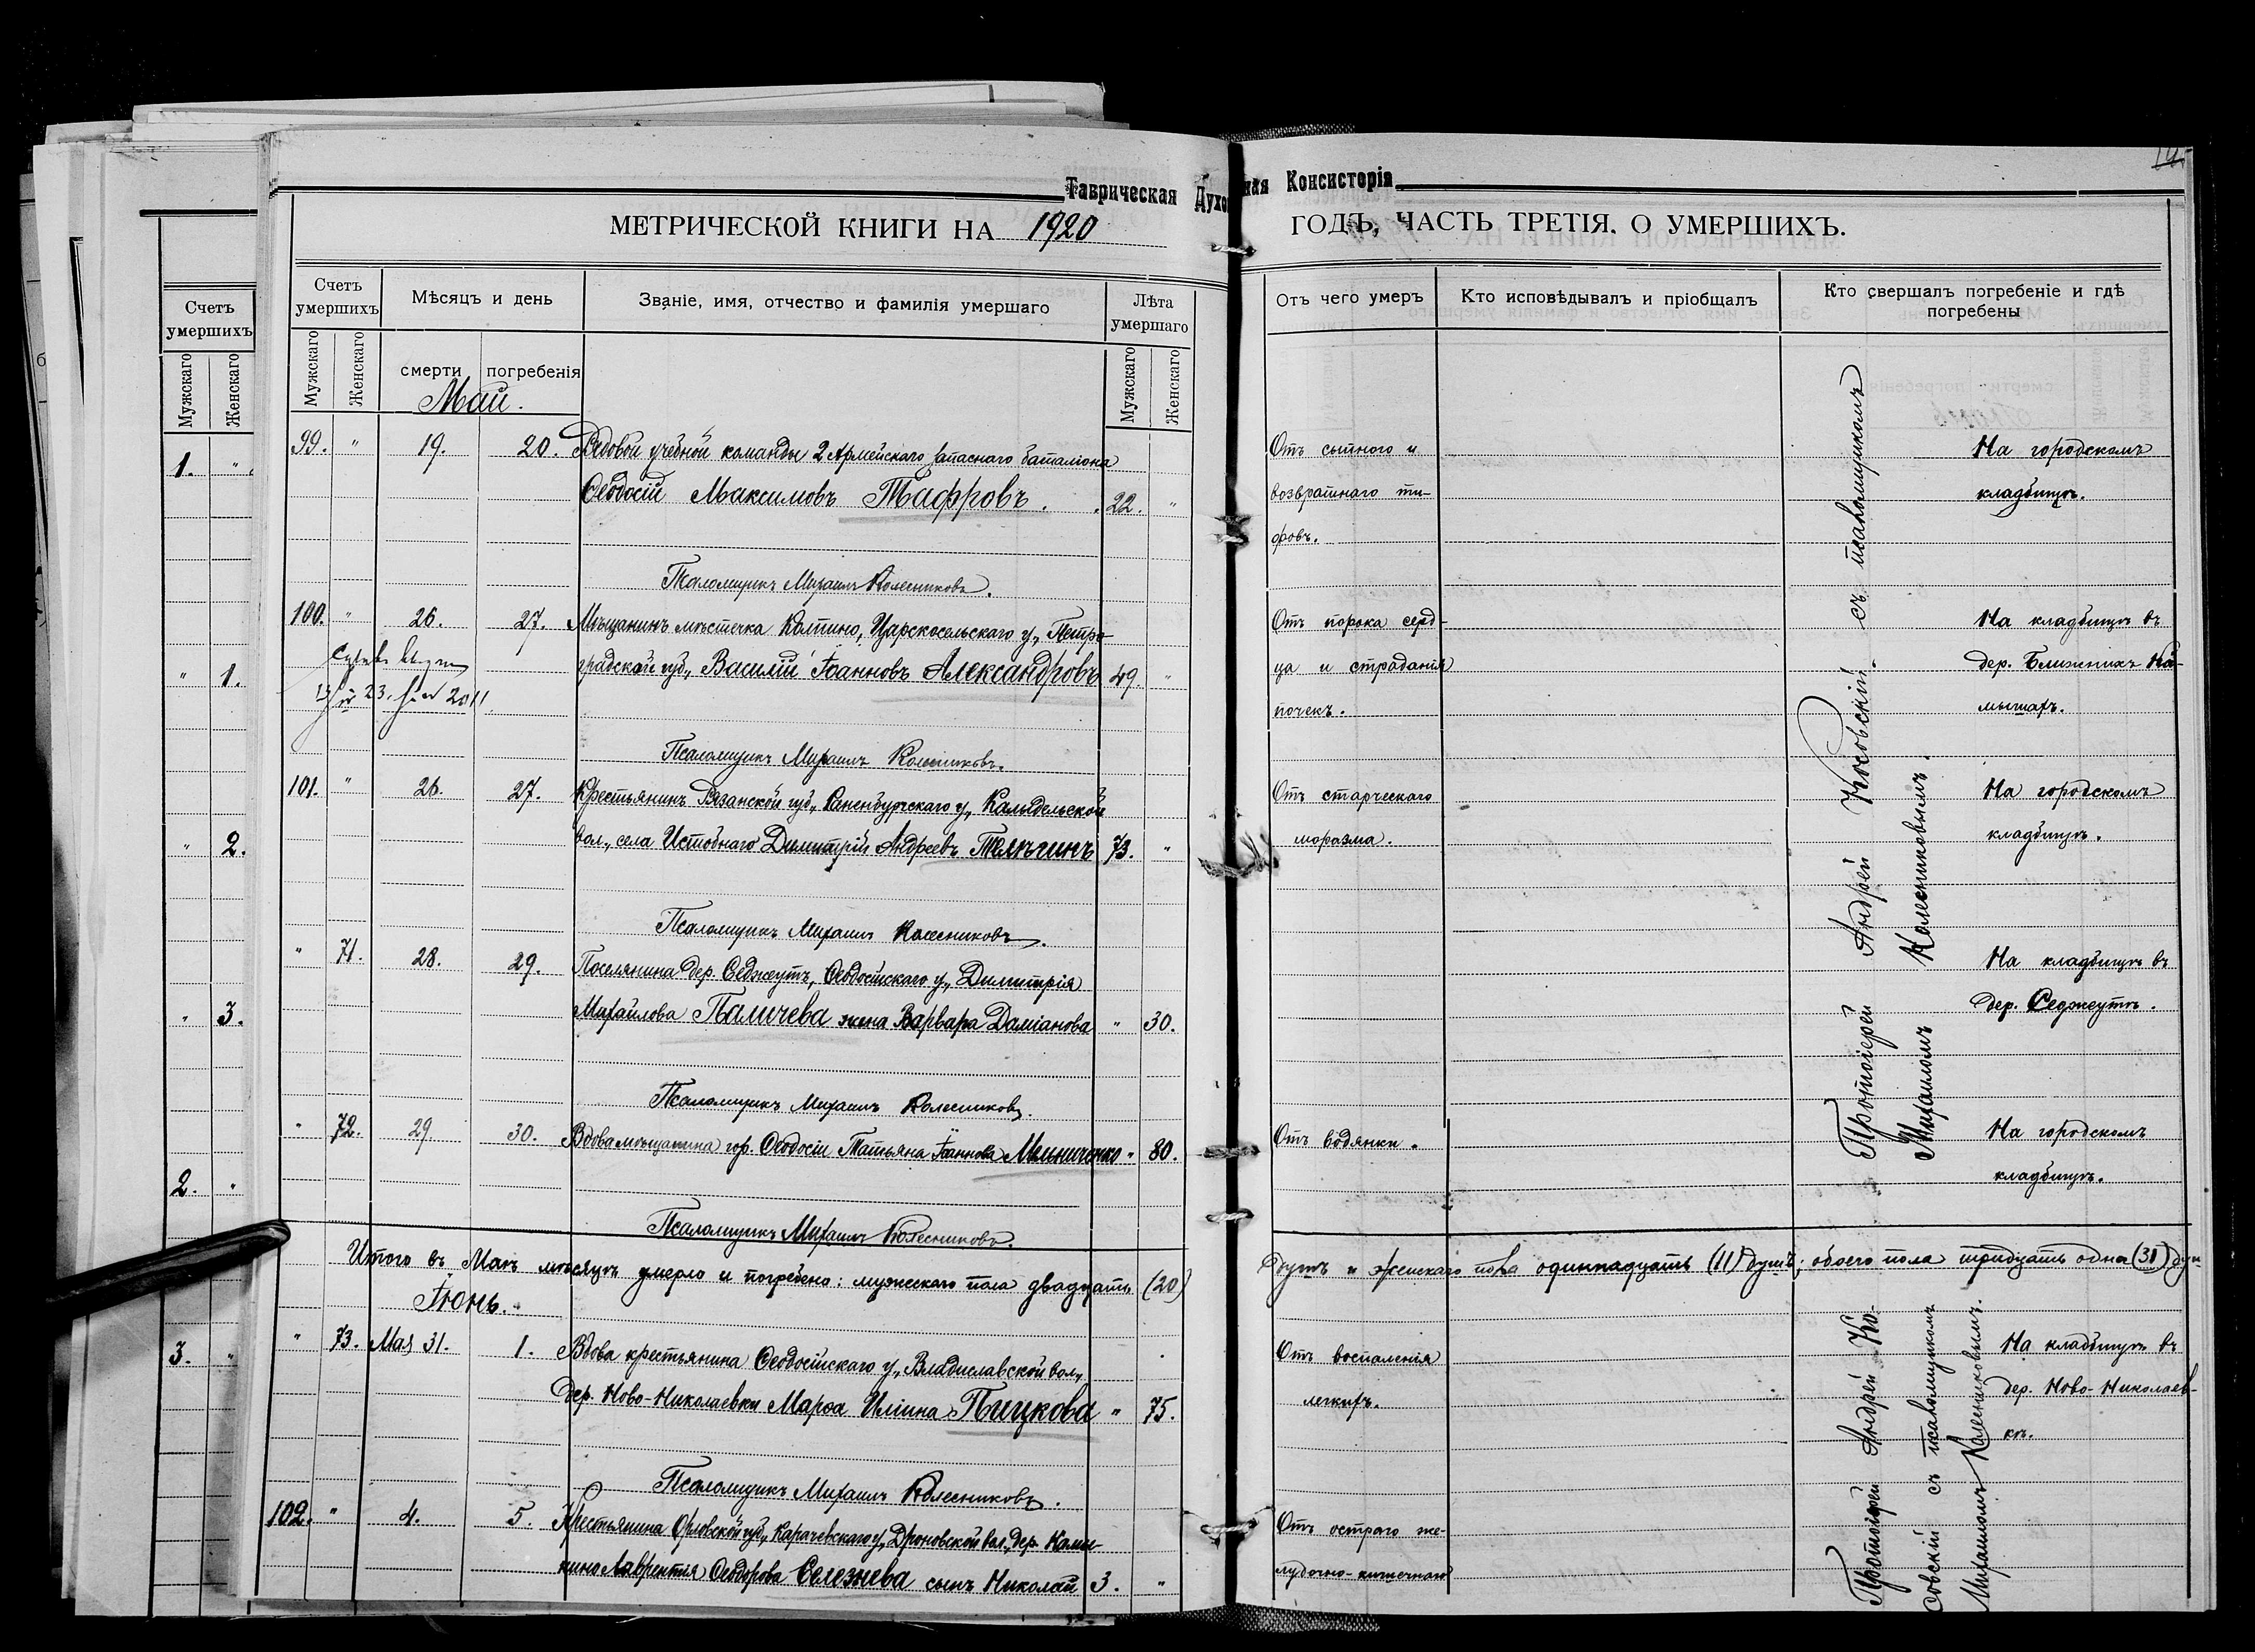 Таврическая Духовная Консисторія
МЕТРИЧЕСКОЙ КНИГИ НА 1920 ГОДЪ, ЧАСТЬ ТРЕТІЯ. О УМЕРШИХЪ.
Счетъ умершихъ
Мужскаго
Женскаго
1. "
" 1.
" 2.
" 3.
2. "
3. "
Счетъ умершихъ
Мѣсяцъ и день
Званіе, имя, отчество и фамилія умершаго
Лѣта умершаго
Мужскаго
Женскаго
смерти
погребенія
Мужскаго
Женскаго
Май.
99. " 19. 20. Рядовой учебной команды 2 Армейскаго запаснаго баталіона
Ѳеодосій Максимовъ Тафровъ. 22. "
Псаломщикъ Михаилъ Колесниковъ.
100. " 26. 27. Мѣщанинъ мѣстечка Колпино, Царскосельскаго у., Петро-
градской губ., Василій Іоанновъ Александровъ 49. "
Псаломщикъ Михаилъ Колесниковъ.
101. " 26. 27. Крестьянинъ Рязанской губ., Раненбургскаго у.,
вол., села Истобнаго Димитрій Андреевъ Телѣгинъ 73. "
Псаломщикъ Михаилъ Колесниковъ.
" 71. 28. 29. Поселянина дер. Седжеутъ, Ѳеодосійскаго у., Димитрія
Михайлова Паличева жена Варвара Даміанова " 30.
Псаломщикъ Михаилъ Колесниковъ.
" 72. 29 30. Вдова мѣщанина гор. Ѳеодосіи Татьяна Іоаннова Мельниченко " 80.
Псаломщикъ Михаилъ Колесниковъ.
Итого въ Маѣ мѣсяцѣ умерло и погребено: мужескаго пола двадцать (20)
Іюнь.
" 73. Мая 31. 1. Вдова крестьянина Ѳеодосійскаго у., Владиславской вол.,
дер. Ново-Николаевки Марѳа Илiина Пицкова " 75.
Псаломщикъ Михаилъ Колесниковъ.
102. " 4. 5. Крестьянина Орловской губ., Карачевскаго у., Дроновской вол., дер.
Лаврентія Ѳеодорова Селезнева сынъ Николай 3. "
Отъ чего умеръ
Кто исповѣдывалъ и пріобщалъ
Кто свершалъ погребеніе и гдѣ погребены
Отъ сыпного и
возвратнаго ти-
фовъ.
На городскомъ
кладбищѣ.
Отъ порока серд-
ца и страданія
почекъ.
На кладбищѣ въ
дер. Ближнихъ Ка-
мышахъ.
Отъ старческаго
моразма.
На городскомъ
кладбищѣ.
На кладбищѣ въ
дер. Седжеутъ.
Отъ водянки.
На городскомъ
кладбищѣ.
Протоіерей Андрей Косовскій съ псаломщикомъ
Михаиломъ Колесниковымъ.
душъ и женскаго пола одиннадцать (11) душъ; обоего пола тридцать одна (31) душ
Отъ воспаленія
легкихъ.
На кладбищѣ въ
дер. Ново-Николаев-
кѣ.
Отъ остраго же-
лудочно-кишечнаго
Протоіерей Андрей Ко-
совскій съ псаломщикомъ
Михаиломъ Колесниковымъ.